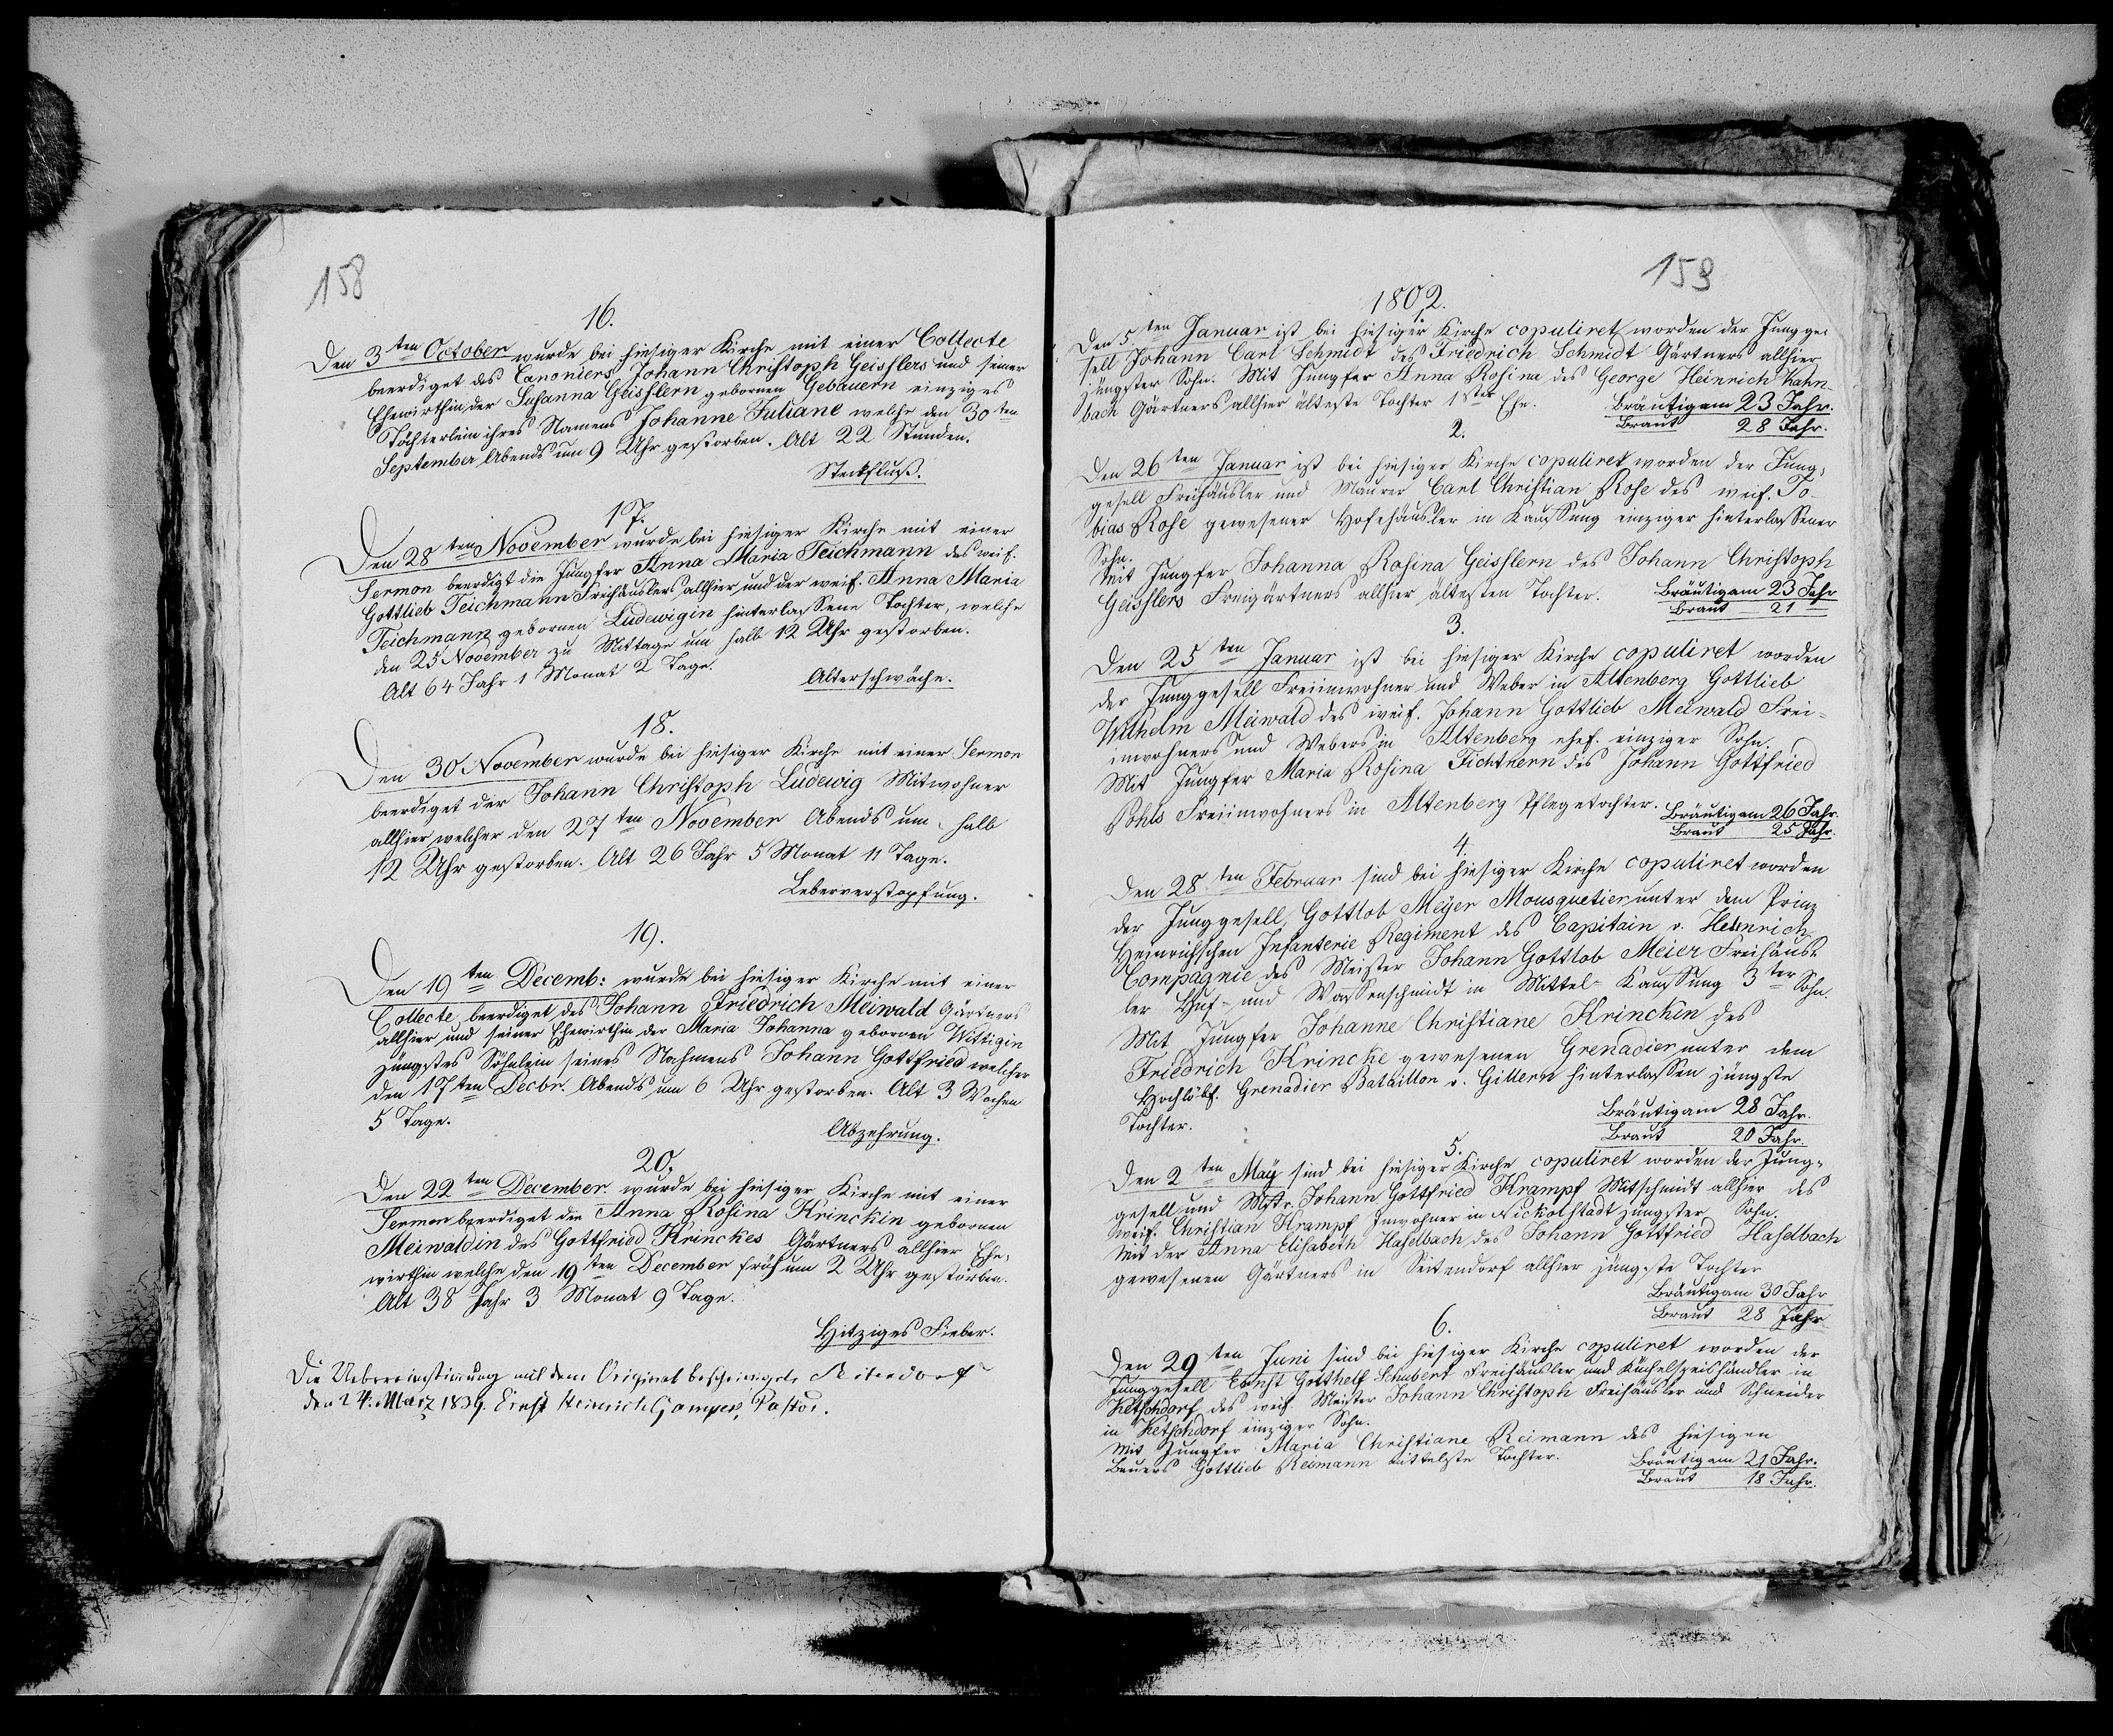 158
16.
Den 3ten October wurde bei hiesiger Kirche mit einer Collecte
beerdiget des Canoniers Johann Christoph Geisslers und seiner
Ehewirthin, der Susanna Geisslern gebornen Gebauern einziges
Töchterlein ihres Namens Johanne Juliane welche den 30ten
September Abends um 9 Uhr gestorben. Alt 22 Stunden.
Steckfluß.
17.
Den 28ten November wurde bei hiesiger Kirche mit einer
Sermon beerdigt die Jungfer Anna Maria Teichmann des weil.
Gottlieb Teichmann Freihäuslers allhier und der weil. Anna Maria
Teichmann gebornen Ludewigin hinterlassene Tochter, welche
den 25 November zu Mittage um halb 12 Uhr gestorben.
Alt 64 Jahr 1 Monat 2 Tage.
Alterschwäche.
18.
Den 30 November wurde bei hiesiger Kirche mit einer Sermon
beerdiget der Johann Christoph Ludewig Mitwohner
allhier, welcher den 27ten November Abends um halb
12 Uhr gestorben. Alt 26 Jahr 5 Monat 11 Tage.
Leberverstopfung.
19.
Den 19ten Decemb: wurde bei hiesiger Kirche mit einer
Collecte beerdiget des Johann Friedrich Meiwald Gärtners
allhier und seiner Ehewirthin der Maria Johanna gebornen Wittigin
jüngstes Söhnlein seines Nahmens Johann Gottfried welcher
den 17ten Decbr. Abends um 6 Uhr gestorben. Alt 3 Wochen
5 Tage.
Abzehrung.
20.
Den 22ten December wurde bei hiesiger Kirche mit einer
Sermon beerdiget die Anna Rosina Krinckin gebornen
Meiwaldin des Gottfried Krinckes Gärtners allhier Ehe-
wirthin welche den 19ten December früh um 2 Uhr gestorben.
Alt 38 Jahr 3 Monat 9 Tage.
Hitziges Fieber.
Die Uebereinstimmung mit dem Original bescheinigt. Seitendorf
den 24. März 1839. Ernst Heinrich Gamper, Pastor.
159
1802.
1.
Den 5ten Januar ist bei hiesiger Kirche copuliret worden der Jungge-
sell Johann Carl Schmidt des Friedrich Schmidt Gärtners allhier
jüngster Sohn. Mit Jungfer Anna Rosina des George Heinrich Hahn-
bach Gärtners allhier älteste Tochter 1ster Ehe. Bräutigam 23 Jahr.
Braut 28 Jahr.
2.
Den 26ten Januar ist bei hiesiger Kirche copuliret worden der Jung-
gesell Freihäusler und Maurer Carl Christian Rose des weil. To-
bias Rose gewesener Hofehäusler in Kauffung einziger hinterlassener
Sohn.
Mit Jungfer Johanna Rosina Geisslern des Johann Christoph
Geisslers Freigärtners allhier ältesten Tochter. Bräutigam 23 Jahr
Braut 21
3.
Den 25ten Januar ist bei hiesiger Kirche copuliret worden
der Junggesell Freiinwohner und Weber in Altenberg Gottlieb
Wilhelm Meiwald des weil. Johann Gottlieb Meiwald Frei-
inwohners und Webers in Altenberg ehel. einziger Sohn.
Mit Jungfer Maria Rosina Fichtnern des Johann Gottfried
Pohls Freiinwohners in Altenberg Pflegetochter. Bräutigam 26 Jahr.
Braut 25 Jahr.
4.
Den 28ten Februar sind bei hiesiger Kirche copuliret worden
der Junggesell Gottlob Meyer Mousquetier unter dem Prinz
Heinrichschen Infanterie Regiment des Capitain v. Heinrich
Compagnie des Meister Johann Gottlob Meier Freihäus-
ler Huf- und Waffenschmidt in Mittel-Kauffung 3ter Sohn.
Mit Jungfer Johanne Christiane Krinckin des
Friedrich Krincke gewesenen Grenadier unter dem
Hochlöbl. Grenadier Bataillon v. Gillern hinterlassen jüngste
Tochter.
Bräutigam 28 Jahr.
Braut 20 Jahr.
5.
Den 2ten May sind bei hiesiger Kirche copuliret worden der Jung-
gesell und Mstr. Johann Gottfried Krampf Mitschmidt allhier des
weil. Christian Krampf Inwohner in Nickolstadt jüngster Sohn.
Mit der Anna Elisabeth Haselbach des Johann Gottfried Haselbach
gewesenen Gärtners in Seitendorf allhier jüngste Tochter
Bräutigam 30 Jahr
Braut 28 Jahr
6.
Den 29ten Juni sind bei hiesiger Kirche copuliret worden der
Junggesell Ernst Gotthelf Schubert Freihäusler und händler in
Ketschdorf des weil. Meister Johann Christoph Freihäusler und Schneider
in Ketschdorf einziger Sohn.
Mit Jungfer Maria Christiane Reimann des hiesigen
Bauers Gottlieb Reimann mittelste Tochter. Bräutigam 21 Jahr.
Braut 18 Jahr.